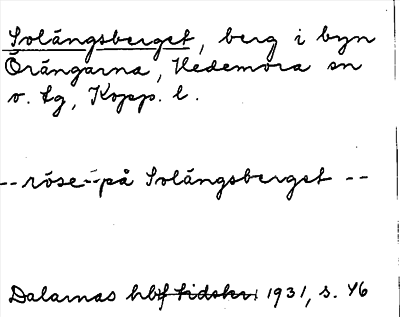 Solängsberget, berg i byn
Örängarna, Hedemora sn
o. tg, Kopp. l.
-- röse -- på Solängsberget --
Dalarnas hbf tidskr. 1931, s. 46